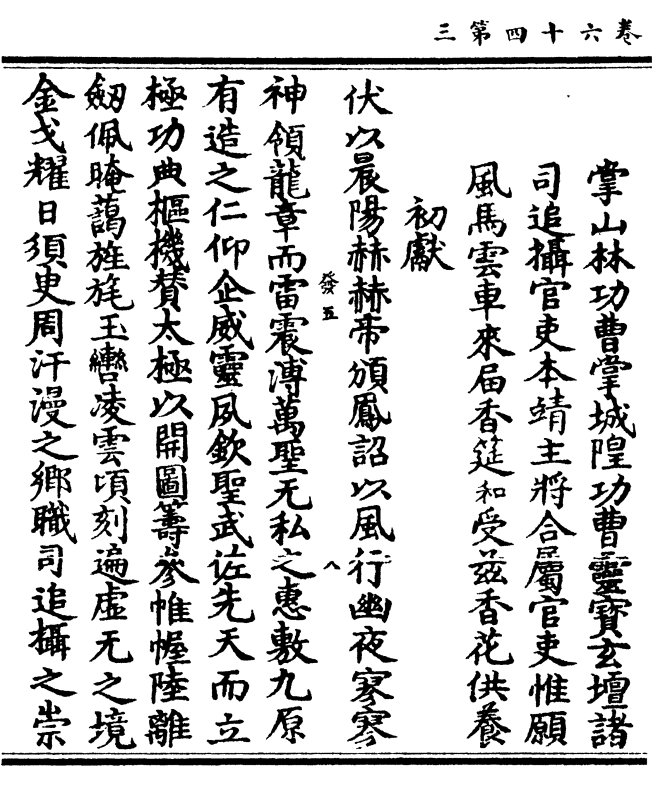 三第四十六卷
掌山林功曹掌城隍功曹靈寶玄壇諸
司追攝官吏本靖主將合屬官吏惟願
風馬雲車來届香筵和受兹香花供養
初獻
伏以晨陽赫赫帝頒鳳詔以風行幽夜寥寥
發五
八
神領龍章而雷震溥萬聖无私之惠敷九原
有造之仁仰企威靈夙欽聖武佐先天而立
極功典樞機賛太極以開圖籌參帷幄陸離
劒佩晻藹旌旄玉轡凌雲頃刻遍虚无之境
金戈耀日須臾周汗漫之鄉職司追攝之崇